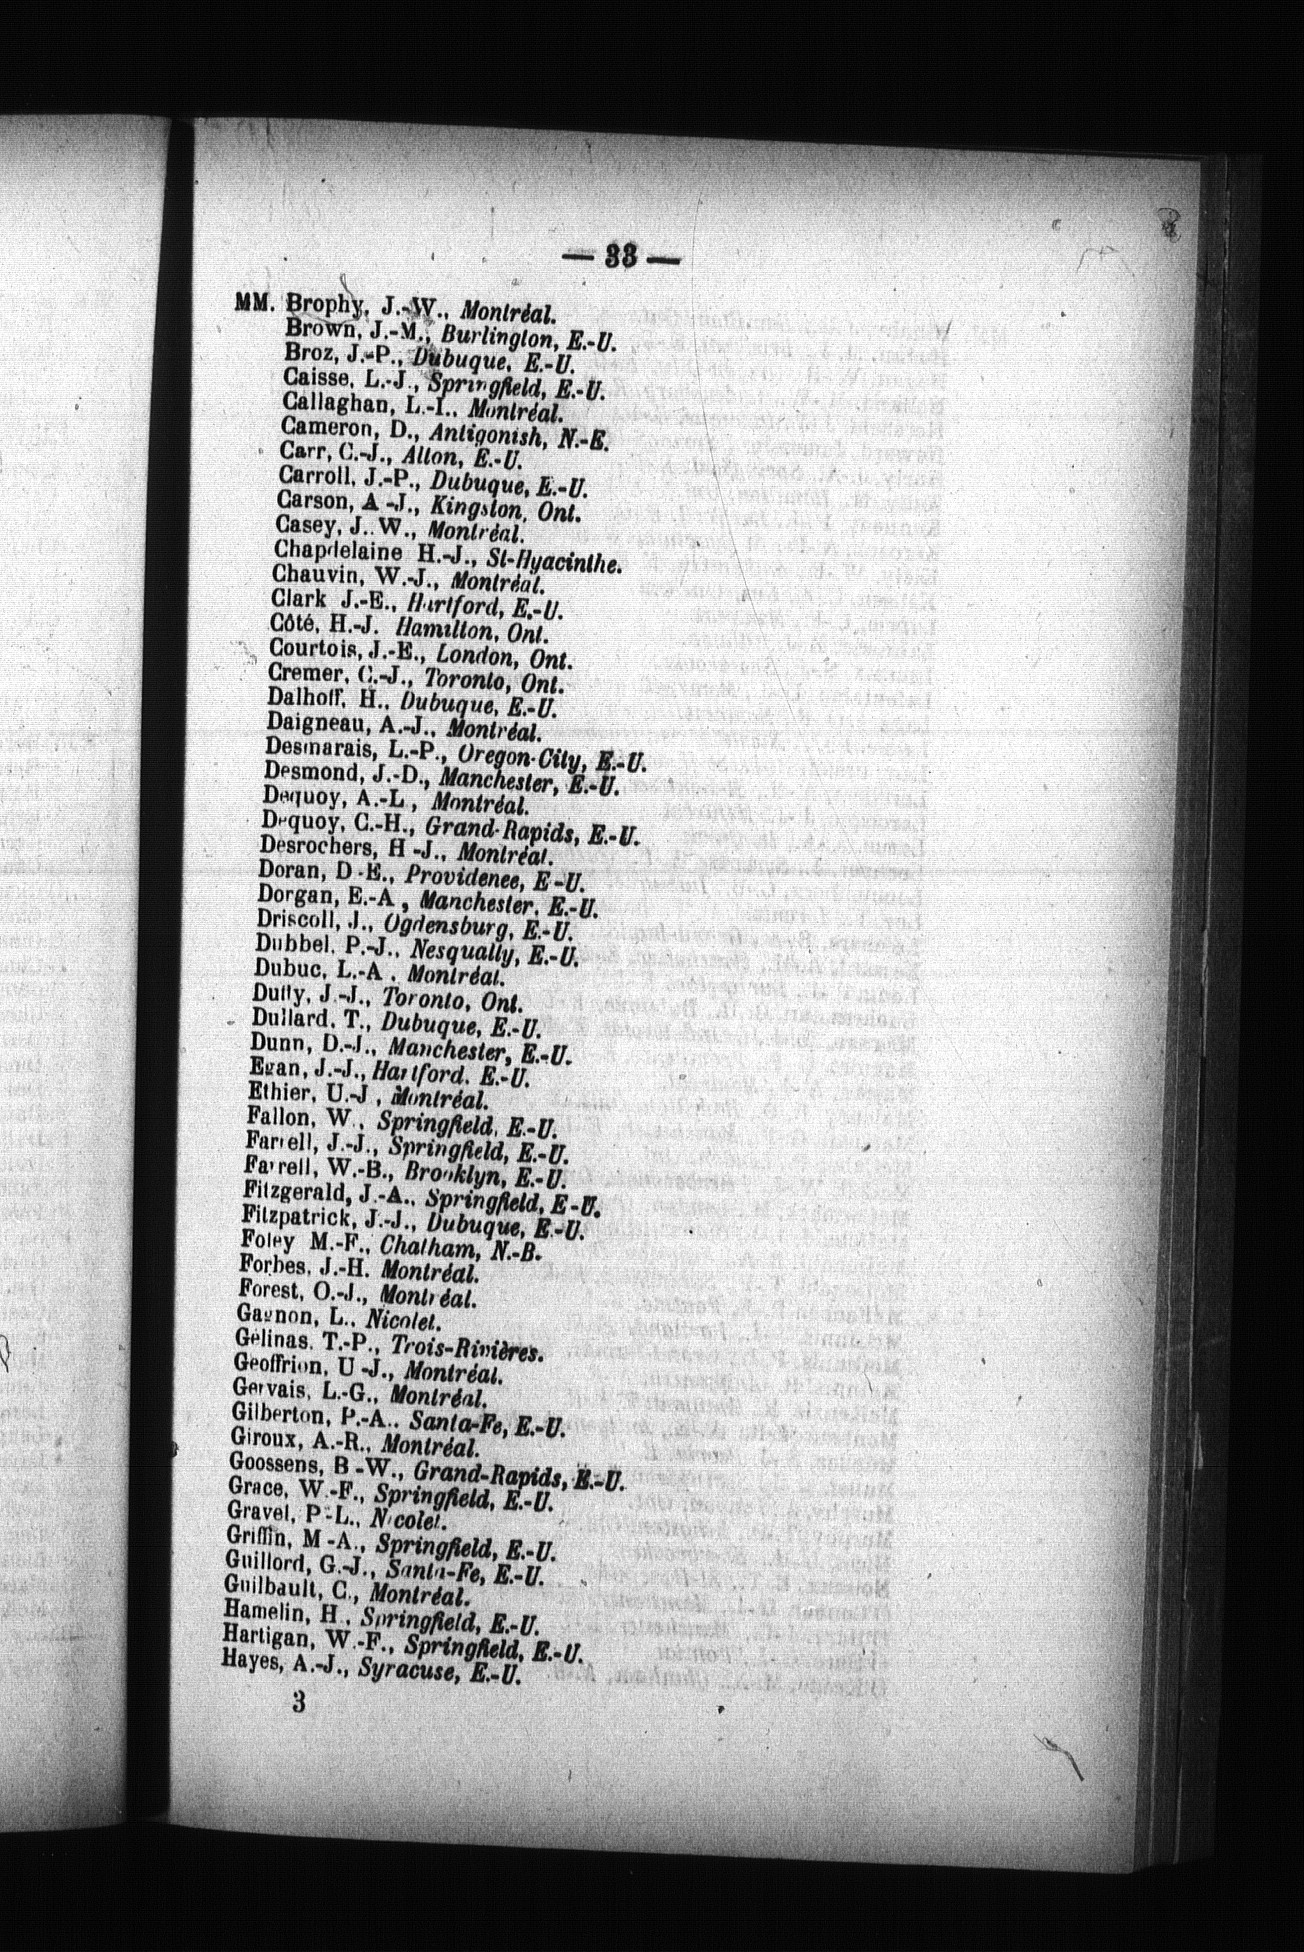 — 33 —
MM. Brophy, J.-W., Montréal.
Brown, J.-M., Burlington, E.-U.
Broz, J.-P., Dubuque, E.-U.
Caisse, L.-J., Springfield, E.-U.
Callaghan, L.-I., Montréal.
Cameron, D., Antigonish, N.-E.
Carr, C.-J., Alton, E.-U.
Carroll, J.-P., Dubuque, E.-U.
Carson, A.-J., Kingston, Ont.
Casey, J.-W., Montréal.
Chapdelaine H.-J., St-Hyacinthe.
Chauvin, W.-J., Montréal.
Clark J.-E., Hartford, E.-U.
Côté, H.-J. Hamilton, Ont.
Courtois, J.-E., London, Ont.
Cremer, C.-J., Toronto, Ont.
Dalhoff, H., Dubuque, E.-U.
Daigneau, A.-J., Montréal.
Desmarais, L.-P., Oregon-City, E.-U.
Desmond, J.-D., Manchester, E.-U.
Dequoy, A.-L., Montréal.
Dequoy, C.-H., Grand-Rapids, E.-U.
Desrochers, H.-J., Montréal.
Doran, D.-E., Providenee, E.-U.
Dorgan, E.-A., Manchester, E.-U.
Driscoll, J., Ogdensburg, E.-U.
Dubbel, P.-J., Nesqually, E.-U.
Dubuc, L.-A., Montréal.
Duffy, J.-J., Toronto, Ont.
Dullard, T., Dubuque, E.-U.
Dunn, D.-J., Manchester, E.-U.
Egan, J.-J., Hartford, E.-U.
Ethier, U.-J., Montréal.
Fallon, W., Springfield, E.-U.
Farrell, J.-J., Springfield, E.-U.
Farrell, W.-B., Brooklyn, E.-U.
Fitzgerald, J.-A., Springfield, E-U.
Fitzpatrick, J.-J., Dubuque, E.-U.
Foley M.-F., Chatham, N.-B.
Forbes, J.-H. Montréal.
Forest, O.-J., Montréal.
Gagnon, L., Nicolet.
Gélinas, T.-P., Trois-Rivières.
Geoffrion, U.-J., Montréal.
Gervais, L.-G., Montréal.
Gilberton, P.-A., Santa-Fe, E.-U.
Giroux, A.-R., Montréal.
Goossens, B.-W., Grand-Rapids, E.-U.
Grace, W.-F., Springfield, E.-U.
Gravel, P.-L., Nicolet.
Griffin, M.-A., Springfield, E.-U.
Guillord, G.-J., Santa-Fe, E.-U.
Guilbault, C., Montréal.
Hamelin, H., Springfield, E.-U.
Hartigan, W.-F., Springfield, E.-U.
Hayes, A.-J., Syracuse, E.-U.
3